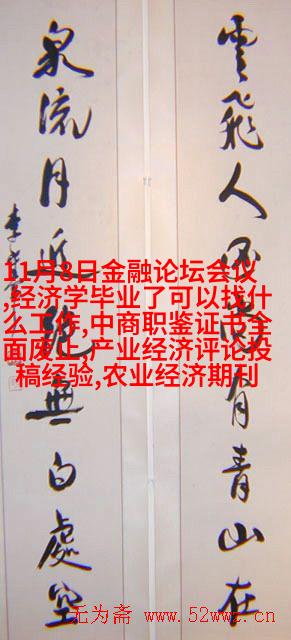 雲飛人有青山在
泉流月近無白處空
李
11月8日金融论坛会议
,经济学毕业了可以找什
么工作,中商职鉴证书全
面废止,产业经济评论投
稿经验,农业经济期刊
无为斋 www.52wwz.cn